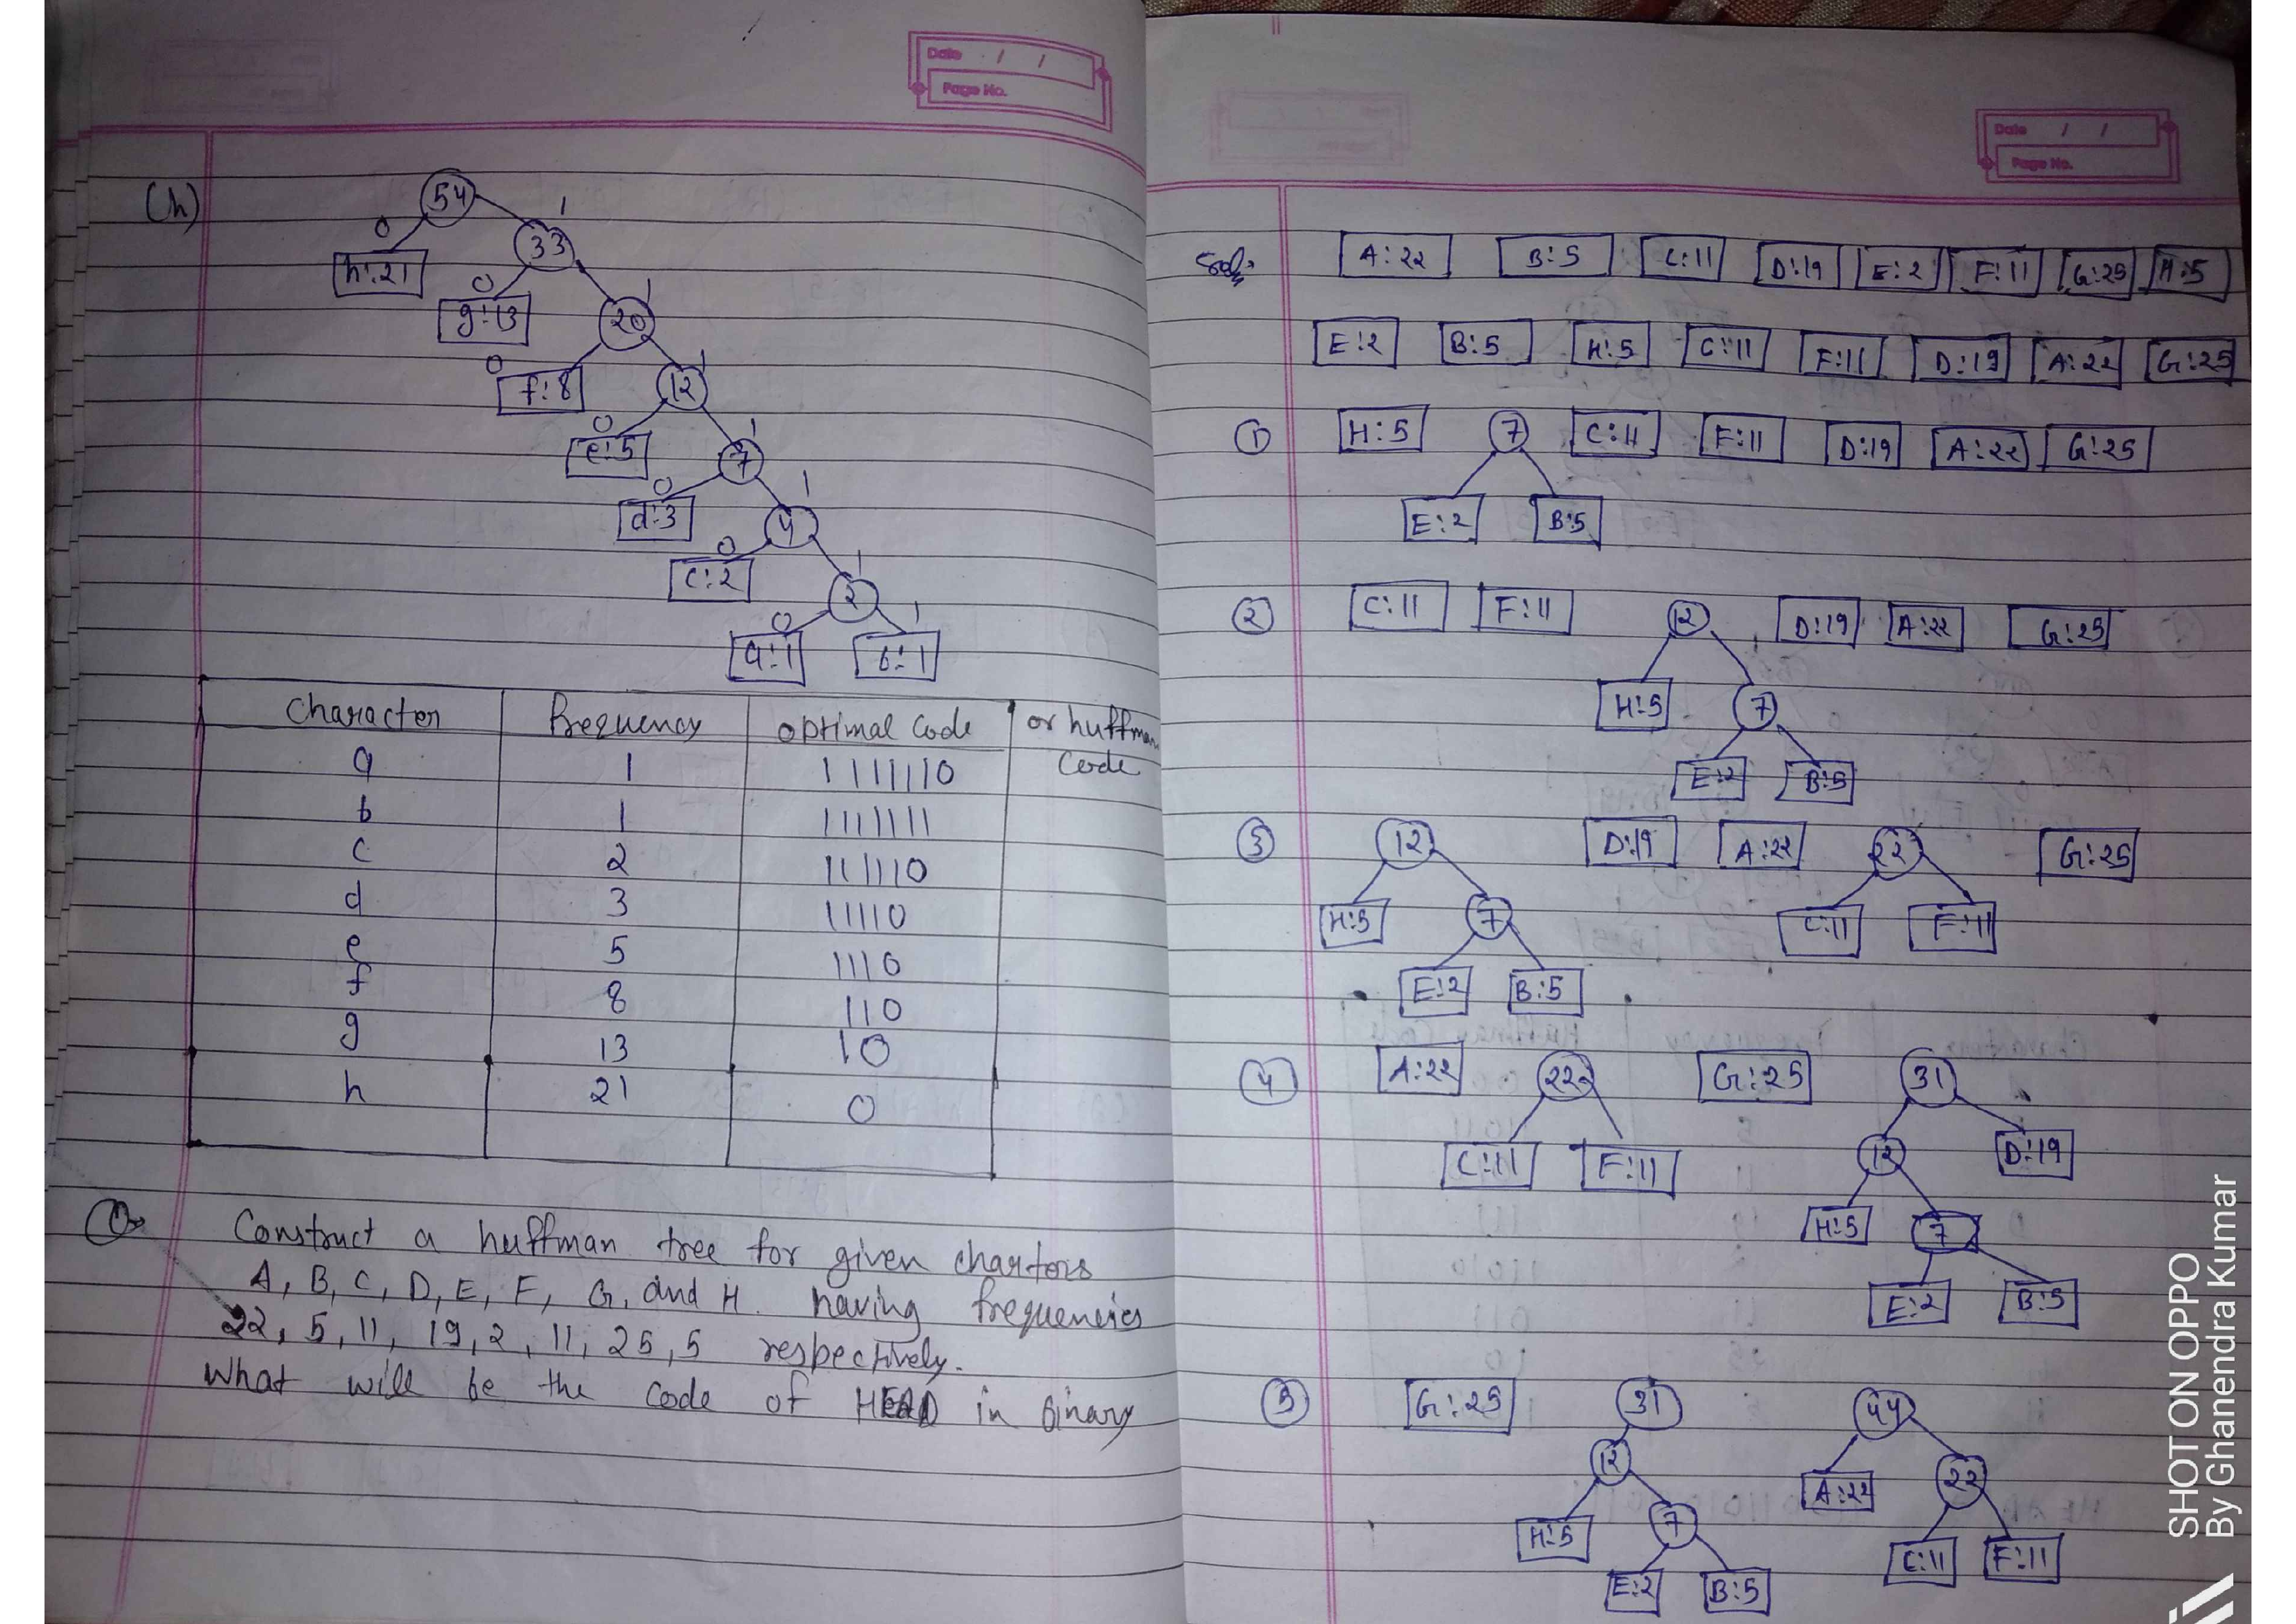 Date / /
Page No.
(h)
54
0 1
h:21 33
0 1
g:13 20
0 1
f:8 12
0 1
e:5 7
0 1
d:3 4
0 1
c:2 2
0 1
a:1 b:1
Character Frequency optimal code or huffman code
a 1 1111110
b 1 1111111
c 2 111110
d 3 11110
e 5 1110
f 8 110
g 13 10
h 21 0
Q→ Construct a huffman tree for given chartors
A, B, C, D, E, F, G, and H. having frequencies
22, 5, 11, 19, 2, 11, 25, 5 respectively.
What will be the code of HEAD in Binary
Date / /
Page No.
Sol:
A:22 B:5 C:11 D:19 E:2 F:11 G:25 H:5
E:2 B:5 H:5 C:11 F:11 D:19 A:22 G:25
① H:5 7 C:11 F:11 D:19 A:22 G:25
E:2 B:5
② C:11 F:11 12 D:19 A:22 G:25
H:5 7
E:2 B:5
③ 12 D:19 A:22 22 G:25
H:5 7 C:11 F:11
E:2 B:5
④ A:22 22 G:25 31
C:11 F:11 12 D:19
H:5 7
E:2 B:5
⑤ G:25 31 44
12 A:22 22
H:5 7 C:11 F:11
E:2 B:5
SHOT ON OPPO
By Ghanendra Kumar